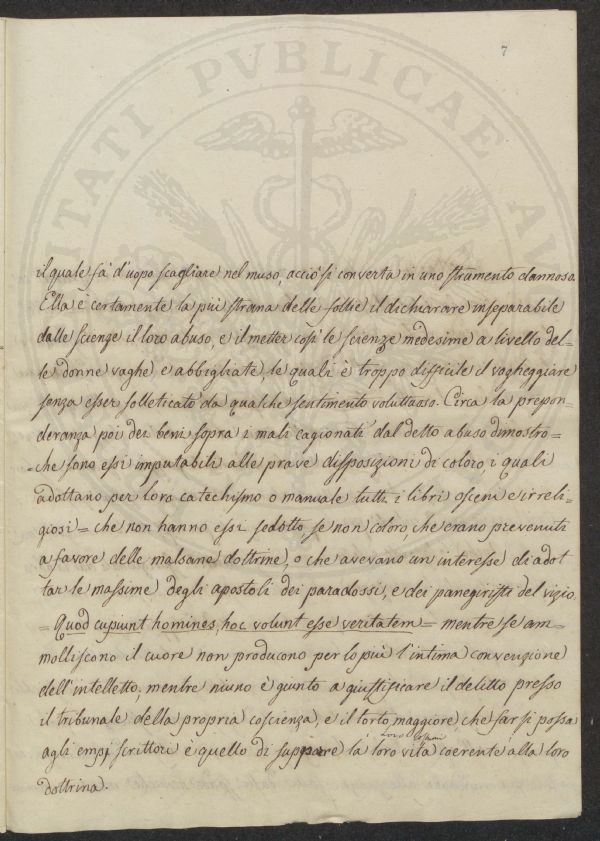 7
il quale fà d'uopo scagliare nel muso, acciò si converta in uno strumento dannoso.
Ella è certamente la più strana delle follie il dichiarare inseparabile
dalle scienze il loro abuso, e il metter così le scienze medesime a livello del=
le donne vaghe e abbigliate, le quali è troppo difficile il vagheggiare
senza esser solleticato da qualche sentimento voluttuoso. Circa la prepon=
deranza poi dei beni sopra i mali cagionati dal detto abuso dimostro=
=che sono essi imputabili alle prave disposizioni di coloro, i quali
adottano per loro catechismo o manuale tutti i libri osceni e irreli=
giosi = che non hanno essi sedotto se non coloro che erano prevenuti
a favore delle malsane dottrine, o che avevano un interesse di adot
tar le massime degli apostoli dei paradossi, e dei panegiristi del vizio.
= Quod cupiunt homines, hoc volunt esse veritatem = mentre se am=
molliscono il cuore non producono per lo più l'intima convenzione
dell'intelletto, mentre niuno è giunto a giustificare il delitto presso
il tribunale della propria coscienza, e il torto maggiore che far si possa
agli empj scrittori è quello di supporre la loro vita coerente alla loro
dottrina.
PVBLICAE